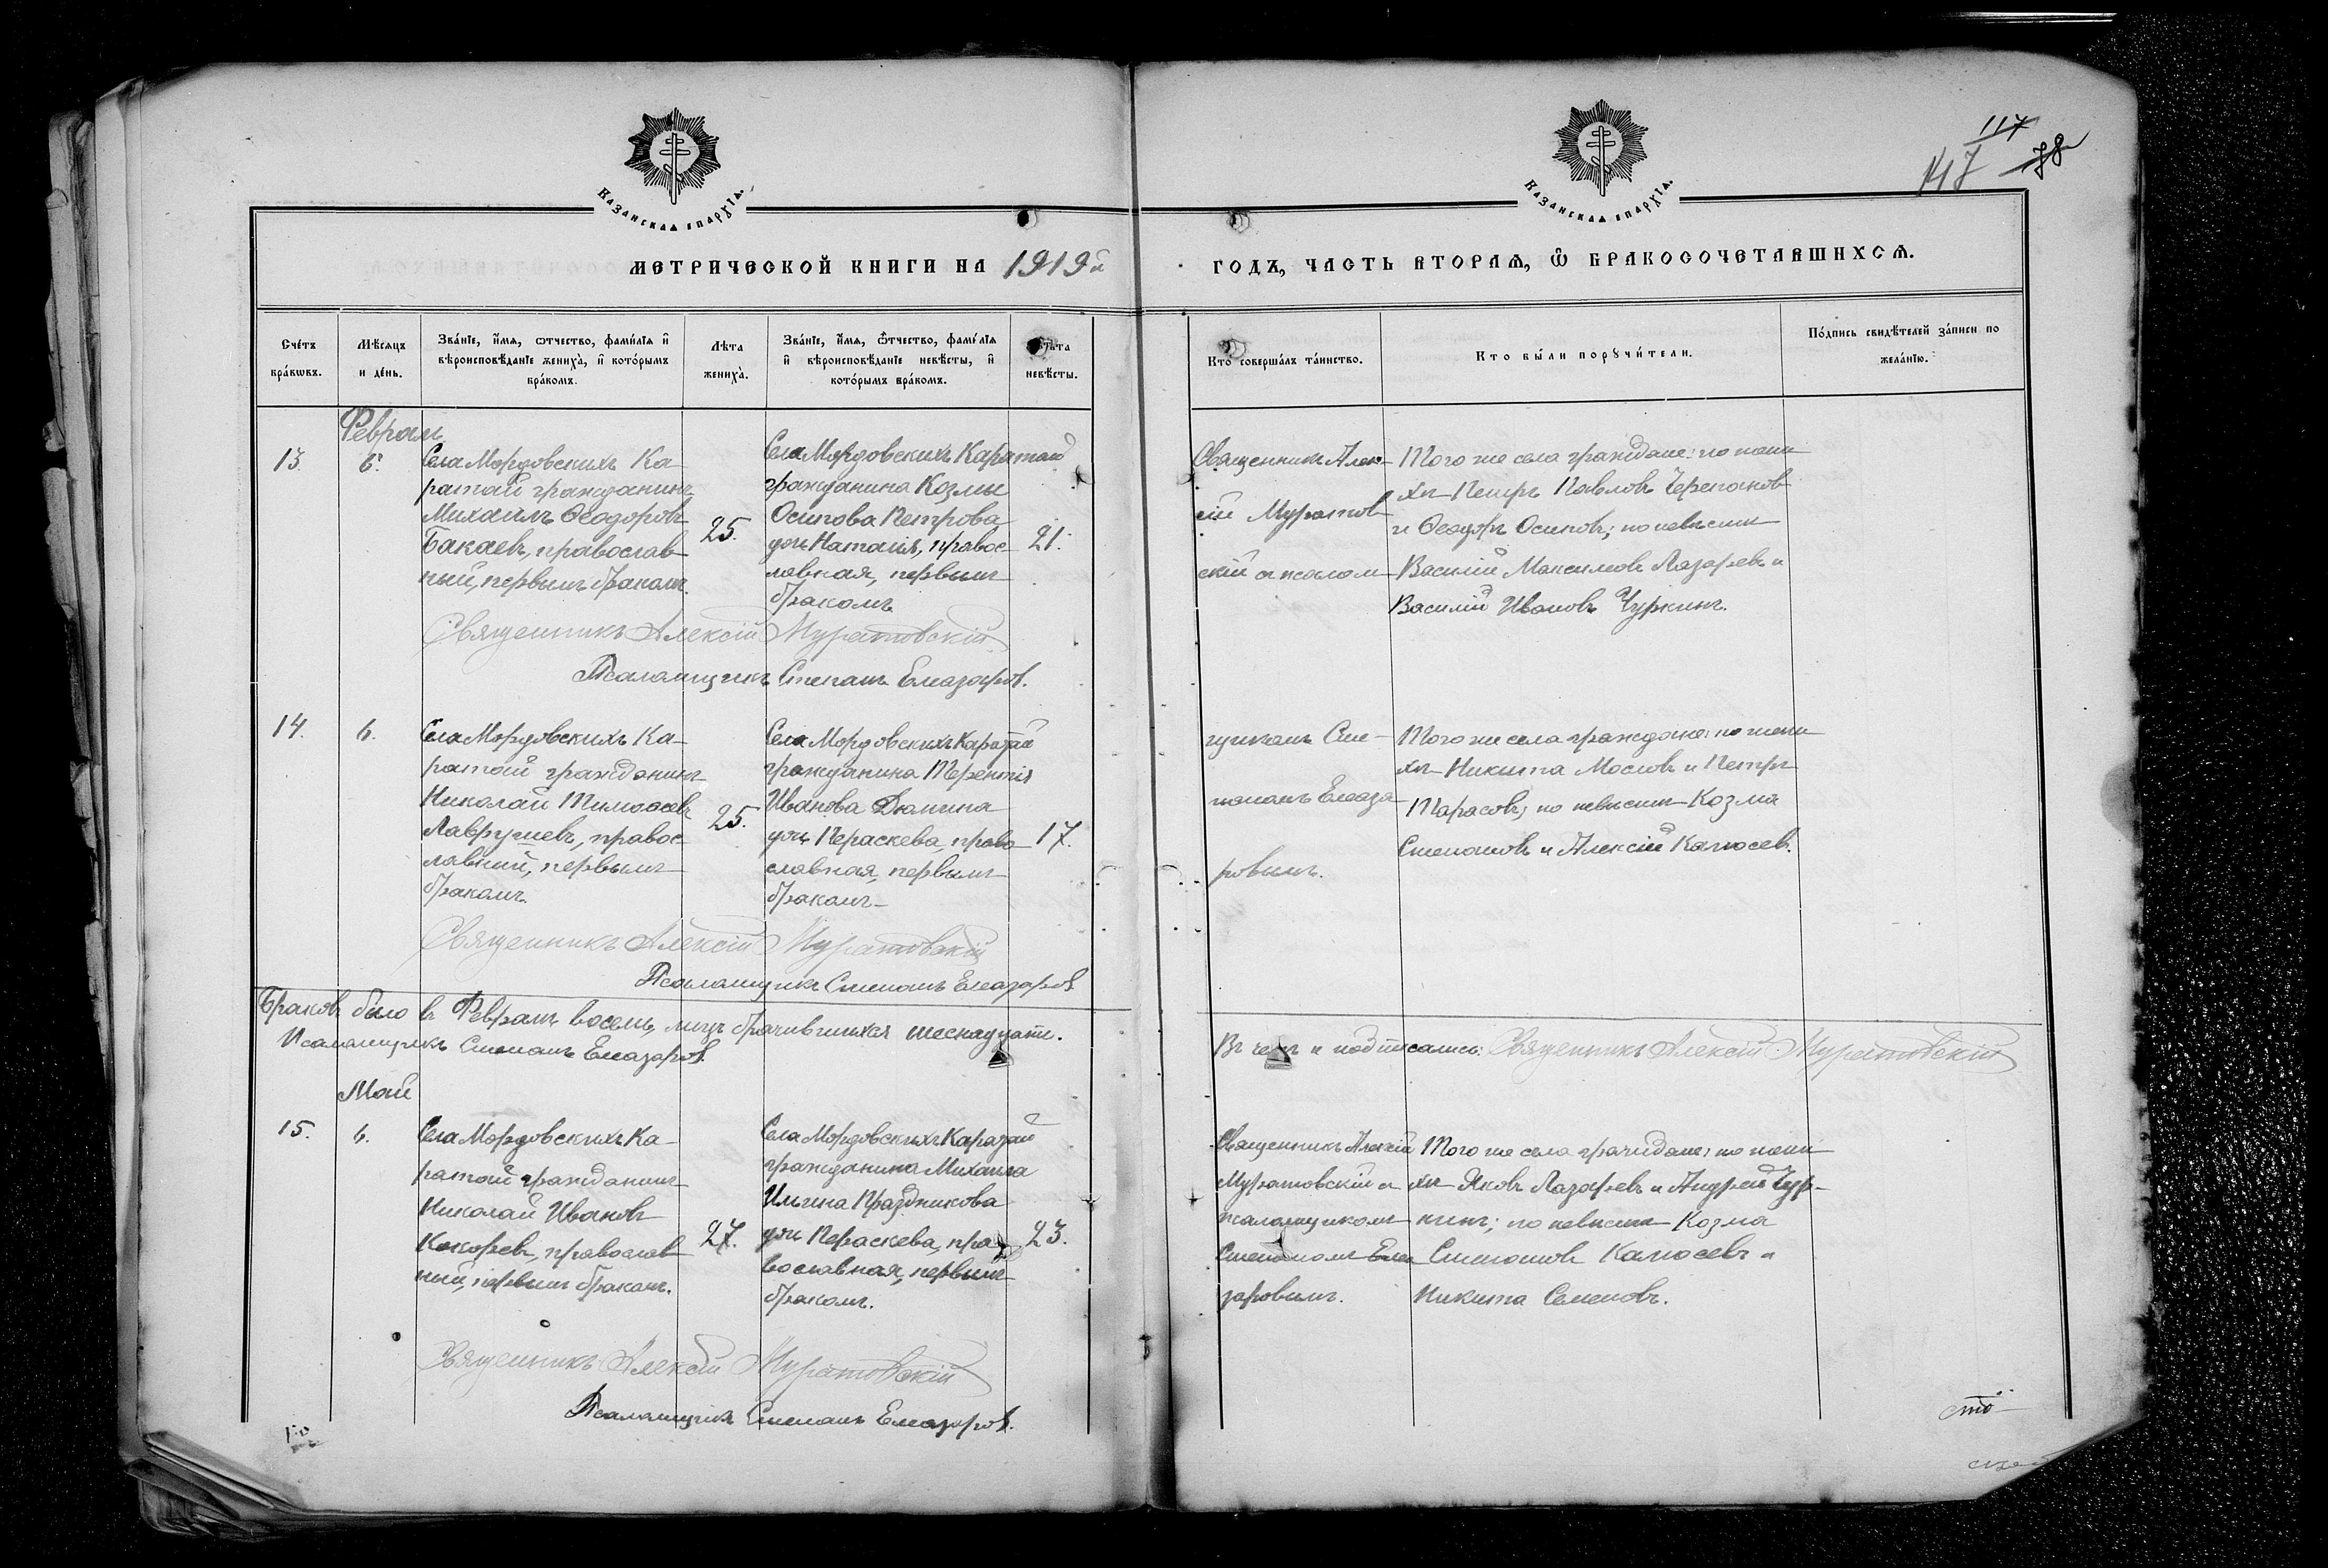 Казанскаѧ епархїѧ.
Казанскаѧ епархїѧ.
117
147 78
МЕТРИЧЕСКОЙ КНИГИ НА 1919й
ГОДЪ, ЧАСТЬ ВТОРАѦ, Ѽ БРАКОСОЧЕТАВШИХСѦ.
Сче́тъ
бра́кѡвъ.
Мѣ́сѧцъ
и де́нь.
Зва́нїе, и҆́мѧ, ѻтчество, фамѝлїѧ и҆
вѣроисповѣ́данїе жениха̀, и҆ кото́рымъ
бра́комъ.
Лѣ́та
жениха̀.
Зва́нїе, и҆́мѧ, ѻтчество, фамѝлїѧ
и҆ вѣроисповѣ́данїе невѣ́сты, и҆
кото́рымъ бра́комъ.
Лѣ́та
невѣ́сты.
Кто̀ соверша́лъ та́инство.
Кто̀ бы́ли порꙋчи́тели.
По́дпись свидѣ́телей за́писи по
жела́нїю.
Февраль
13. 6.
Села Мордовскихъ Ка-
ратай гражданинъ
Михаилъ Ѳеодоровъ
Бакаевъ, православ-
ный, первымъ бракомъ.
25.
Села Мордовскихъ Каратай
гражданина Козмы
Осипова Петрова
дочь Наталія, правос-
лавная, первымъ
бракомъ
21.
Священникъ Алек-
сій Муратов-
скій съ псалом-
Того же села граждане: по жени-
хѣ Петръ Павловъ Черепанов
и Ѳеодоръ Осиповъ; по невѣстѣ
Василій Максимовъ Лазаревъ и
Василій Ивановъ Чуркинъ.
Священникъ Алексій Муратовскій
Псаломщикъ Степанъ Елеазаров.
14. 6.
Села Мордовскихъ Ка-
ратай гражданинъ
Николай Тимоѳеевъ
Лаврушевъ, правос-
лавный, первымъ
бракомъ.
25.
Села Мордовскихъ Каратай
гражданина Терентія
Иванова Дюпина
дочь Параскева, право-
славная, первымъ
бракомъ
17.
щикомъ Сте-
паномъ Елеаза-
ровымъ.
Того же села граждане: по жени-
хѣ Никита Маслов и Петръ
Тарасовъ; по невѣстѣ Козма
Степановъ и Алексій Калюсев.
Священникъ Алексій Муратовскій
Псаломщикъ Степанъ Елеазаров
Браковъ было въ Февралѣ восемь, лицъ бракившихся шеснадцать.
Псаломщикъ Степанъ Елеазаров.
Въ чемъ и подписались: Священникъ Алексій Муратовскій
Май
15. 6.
Села Мордовскихъ Ка-
ратай гражданинъ
Николай Ивановъ
Кокоревъ, православ-
ный, первымъ бракомъ.
27.
Села Мордовскихъ Каратай
гражданина Михаила
Ильина Праздникова
дочь Параскева, пра-
вославная, первымъ
бракомъ.
23.
Священникъ Алексій
Муратовскій съ
псаломщикомъ
Степаномъ Елеа-
заровымъ.
Того же села граждане: по жени-
хѣ Яковъ Лазаревъ и Андрей Чур-
кинъ; по невѣстѣ Козма
Степановъ Калюсевъ и
Никита Семеновъ.
Священникъ Алексій Муратовскій
Псаломщикъ Степанъ Елеазаров.
сто